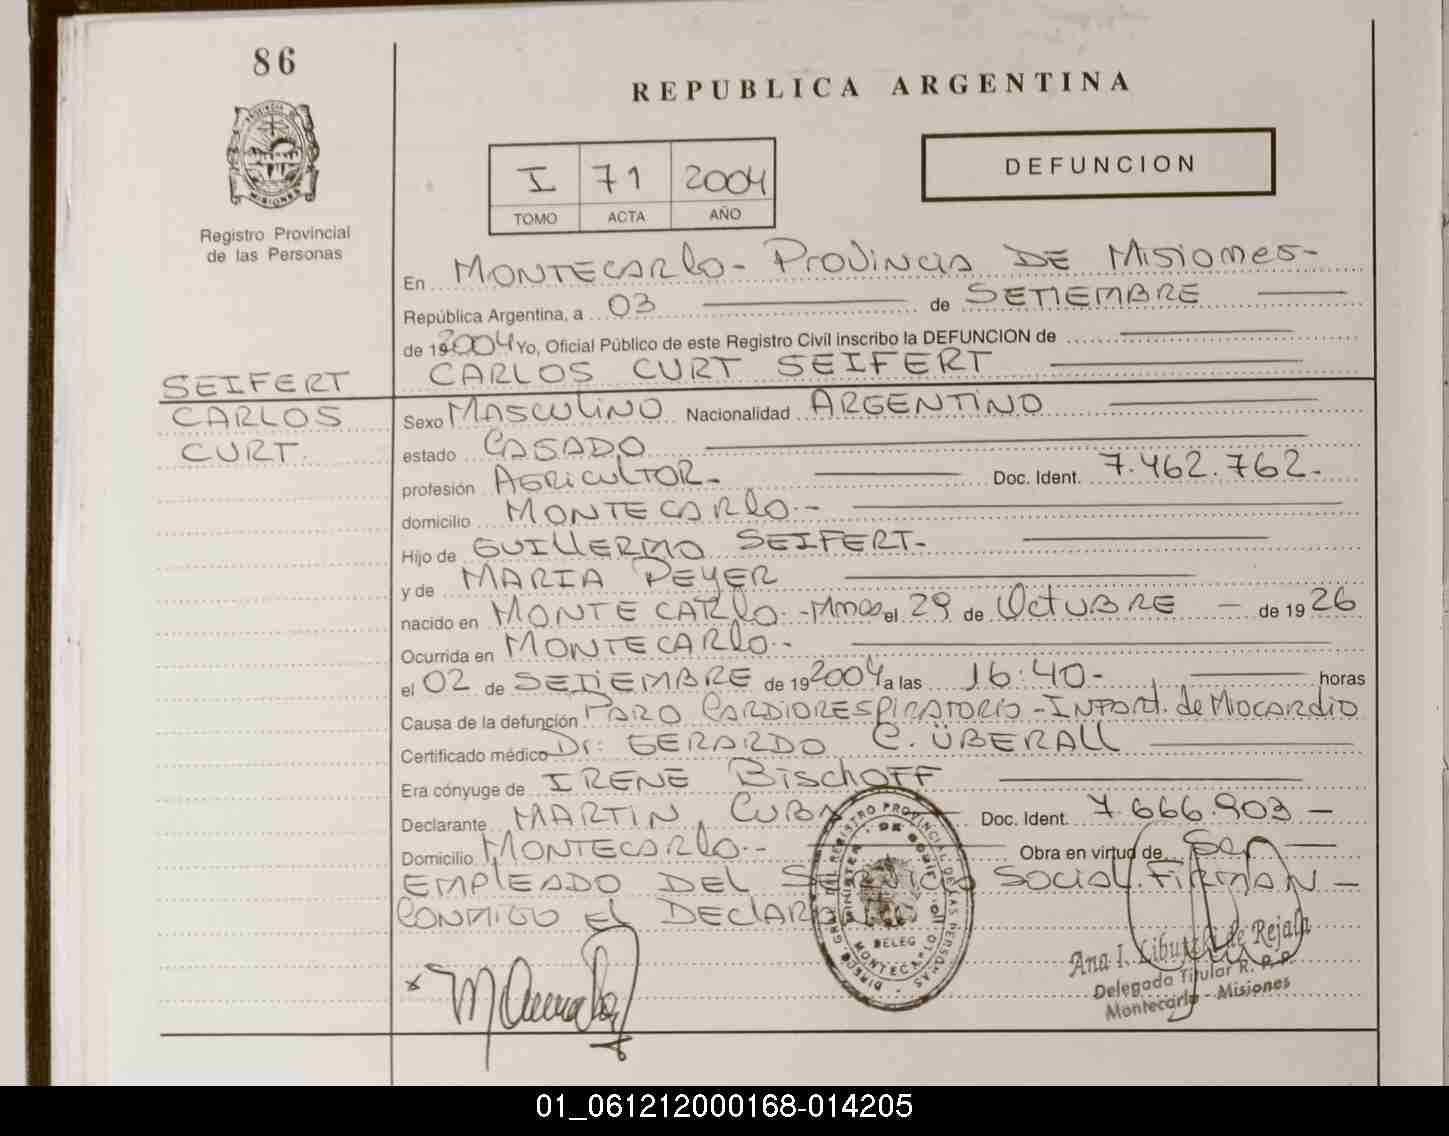 86
REPUBLICA ARGENTINA
PROVINCIA DE
MISIONES
Registro Provincial
de las Personas
I 71 2004
TOMO ACTA AÑO
DEFUNCION
En MONTECARLO - PROVINCIA DE MISIONES -
República Argentina, a 03 de SETIEMBRE
de 19 2004 Yo, Oficial Público de este Registro Civil inscribo la DEFUNCION de
CARLOS CURT SEIFERT
SEIFERT
CARLOS
CURT.
Sexo MASCULINO Nacionalidad ARGENTINO
estado CASADO
profesión AGRICULTOR - Doc. Ident. 7.462.762-
domicilio MONTECARLO -
Hijo de GUILLERMO SEIFERT -
y de MARIA PEYER
nacido en MONTECARLO - Mnes el 29 de OCTUBRE - de 19 26
Ocurrida en MONTECARLO -
el 02 de SETIEMBRE de 19 2004 a las 16:40- horas
Causa de la defunción PARO CARDIORESPIRATORIO - INFART. de MIOCARDIO
Certificado médico Dr: GERARDO C. ÜBERALL
Era cónyuge de IRENE BISCHOFF
Declarante MARTIN CUBA Doc. Ident. 7.666.903 -
Domicilio MONTECARLO - Obra en virtud de SER
EMPLEADO DEL SERVICIO SOCIAL. FIRMAN -
CONMIGO El DECLARANTE
DIRECC. GRAL. DEL REGISTRO PROVINCIAL DE LAS PERSONAS
MINISTER. DE GOBIE
DELEG
MONTECARLO
Ana I. de Rejala
Delegada Titular R. P. P.
Montecarlo - Misiones
01_061212000168-014205